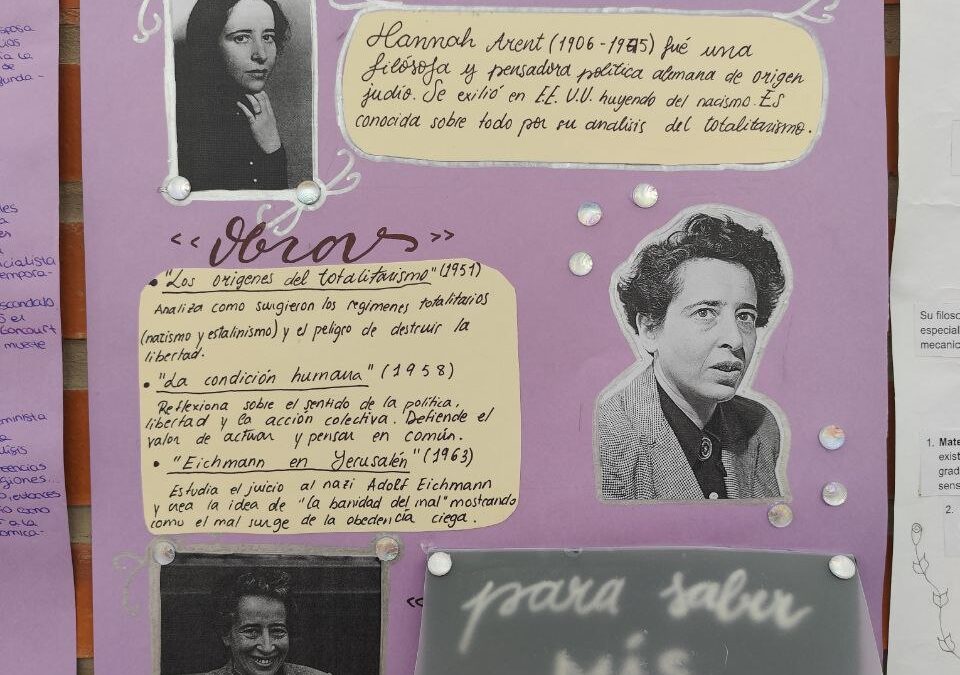 Hannah Arent (1906-1975) fué una
filósofa y pensadora política alemana de origen
judio. Se exilió en EE.UU. huyendo del nacismo. Es
conocida sobre todo por su analisis del totalitarismo.
<< Obras >>
• "Los origenes del totalitarismo" (1951)
Analiza como surgieron los regimenes totalitarios
(nazismo y estalinismo) y el peligro de destruir la
libertad.
• "La condición humana" (1958)
Reflexiona sobre el sentido de la política,
libertad y la acción colectiva. Defiende el
valor de actuar y pensar en común.
• "Eichmann en Yerusalén" (1963)
Estudia el juicio al nazi Adolf Eichmann
y crea la idea de "la banidad del mal" mostrando
como el mal surge de la obedencia ciega.
para saber
MÁS
Su filoso
especial
mecanic
1. Mate
exist
grad
sens
2.